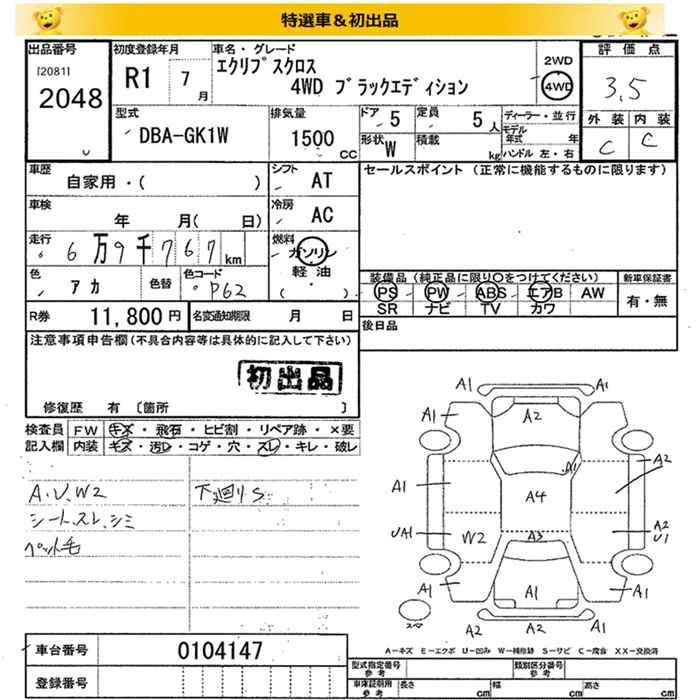 特選車＆初出品
出品番号
[2081]
2048
初度登録年月
R1 7月
車名・グレード
エクリプスクロス
4WD ブラックエディション
2WD
4WD
評価点
3.5
外装 内装
C C
型式
DBA-GK1W
排気量
1500 CC
ドア 5
定員 5人
形状 W
積載 kg
ディーラー・並行
モデル年式 年
ハンドル 左・右
車歴
自家用・( )
シフト AT
セールスポイント (正常に機能するものに限ります)
車検
年 月( 日)
冷房 AC
走行
6万9千767km
燃料
ガソリン
軽油
( ・ )
色 アカ
色替
色コード P62
装備品 (純正品に限り○をつけてください)
新車保証書
PS PW ABS エアB AW
有・無
SR ナビ TV カワ
R券 11,800円
名変通知期限 月 日
後日品
注意事項申告欄(不具合内容等は具体的に記入して下さい)
初出品
修復歴 有 〔箇所 〕
検査員記入欄
FW キズ・飛石・ヒビ割・リペア跡・×要
内装 キズ・汚レ・コゲ・穴・スレ・キレ・破レ
A.U.W2
下廻りS
シートスレ.シミ
ペット毛
A1 A1
A1 A2 A1
A1 A2
A1 A4
UA1 W2 A3 A2 U1
A1 A1 A1
A2 A2
A－キズ E－エクボ U－凹み W－補修跡 S－サビ C－腐食 XX－交換済
車台番号 0104147
登録番号
型式指定番号 参考
類別区分番号 参考
車庫証明用 参考
長さ cm 幅 cm 高さ cm